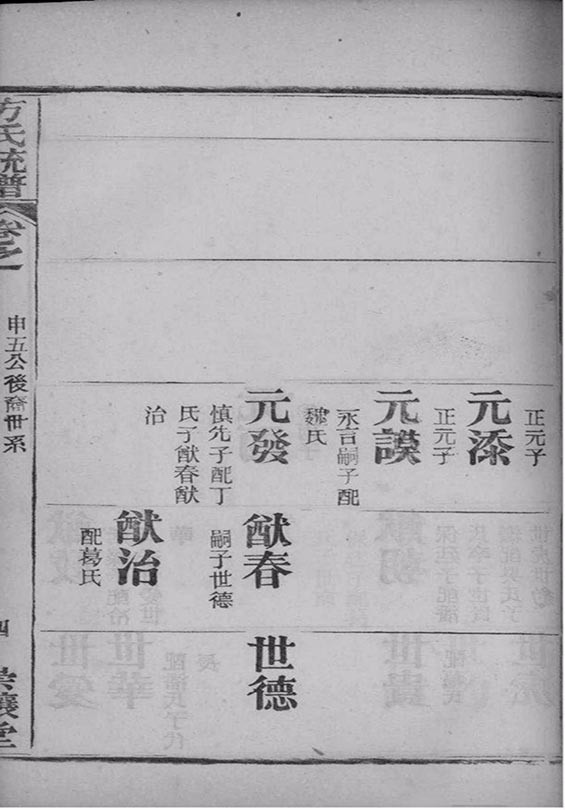 正元子
元漆
正元子
元謨
永言嗣子配
魏氏
元發
慎先子配丁
氏子猷春猷
治
猷春
嗣子世德
猷治
配葛氏
世德
方氏統譜
卷之一
申五公後裔世系
四